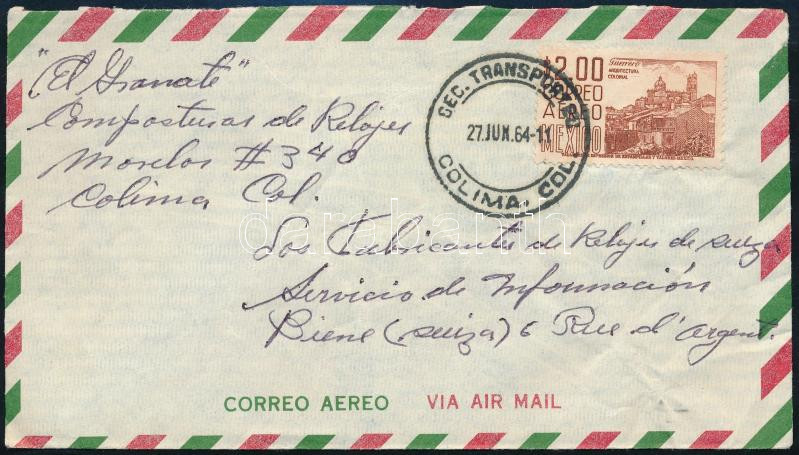 "El Granate"
Composturas de Relojes
Morelos #340
Colima Col.
SEC. TRANSPORTES
27.JUN.64-11
COLIMA, COL.
$2.00
Guerrero
ARQUITECTURA
COLONIAL
AEREO
AEREO
MEXICO
Los Fabricantes de Relojes de suiza
Servicio de Información
Biene (suiza) 6 Rue d'argent.
CORREO AEREO VIA AIR MAIL
darabanth